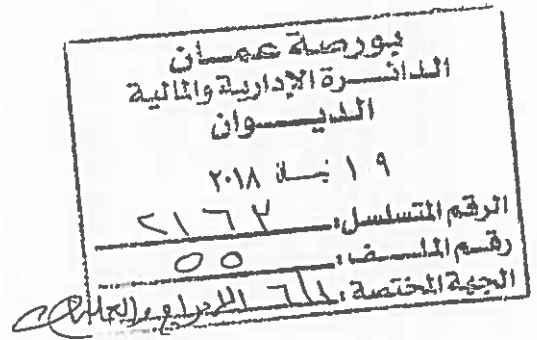 بورصة عمان
الدائرة الإدارية والمالية
الديوان
١٩ نيسان ٢٠١٨
الرقم المتسلسل: ٢١٦٢
رقم الملف: ٥٥
الجهة المختصة: